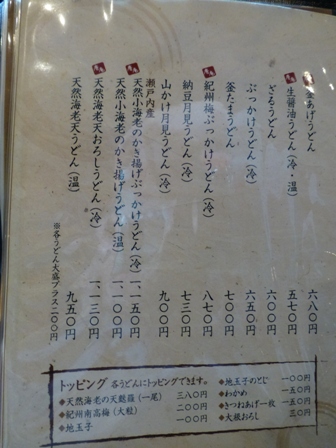 釜あげうどん 六八〇円
生醤油うどん(冷・温) 五七〇円
ざるうどん 六〇〇円
ぶっかけうどん(冷) 六五〇円
釜たまうどん 七〇〇円
紀州梅ぶっかけうどん(冷) 八七〇円
納豆月見うどん(冷) 七三〇円
山かけ月見うどん(冷) 九〇〇円
瀬戸内産
天然小海老のかき揚げぶっかけうどん(冷) 一、一五〇円
天然小海老のかき揚げうどん(温) 一、一〇〇円
天然海老天おろしうどん(冷) 一、一三〇円
天然海老天うどん(温) 九五〇円
※各うどん大盛プラス二〇〇円
トッピング 各うどんにトッピングできます。
◆天然海老の天麩羅(一尾) 三八〇円
◆紀州南高梅(大粒) 二〇〇円
◆地玉子 一〇〇円
◆地玉子のとじ 一〇〇円
◆わかめ 一五〇円
◆きつねあげ一枚 一五〇円
◆大根おろし 三〇円